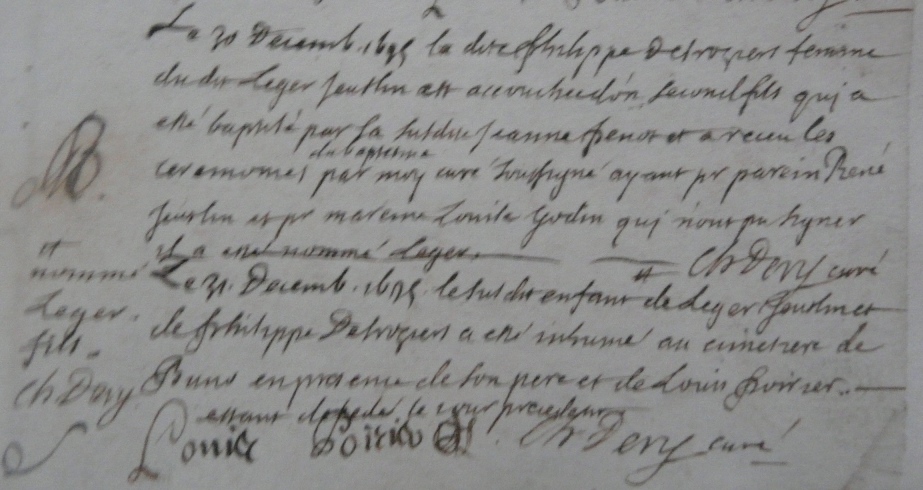 Le 30 Decemb. 1695 la dite Philippe Detroziers femme
du dit Leger Jeuslin est accouchée d'un second fils qui a
esté baptisé par la susdite Jeanne Benoist et a receu les
ceremonies du baptesme par moy curé soussigné ayant pr parein René
Jeuslin et pr mareine Louise Godin qui n'ont pu signer
il a esté nommé Leger.
Ch Dery curé
Le 31. Decemb. 1695. le susdit enfant de Leger Jeuslin et
de Philippe Detroziers a esté inhumé au cimetiere de
en presence de son pere et de Louis Poirier..
estant decedé le jour precedent
Louis Poirier
Ch Dery curé
B.
et
nommé
Leger.
fils.
Ch Dery